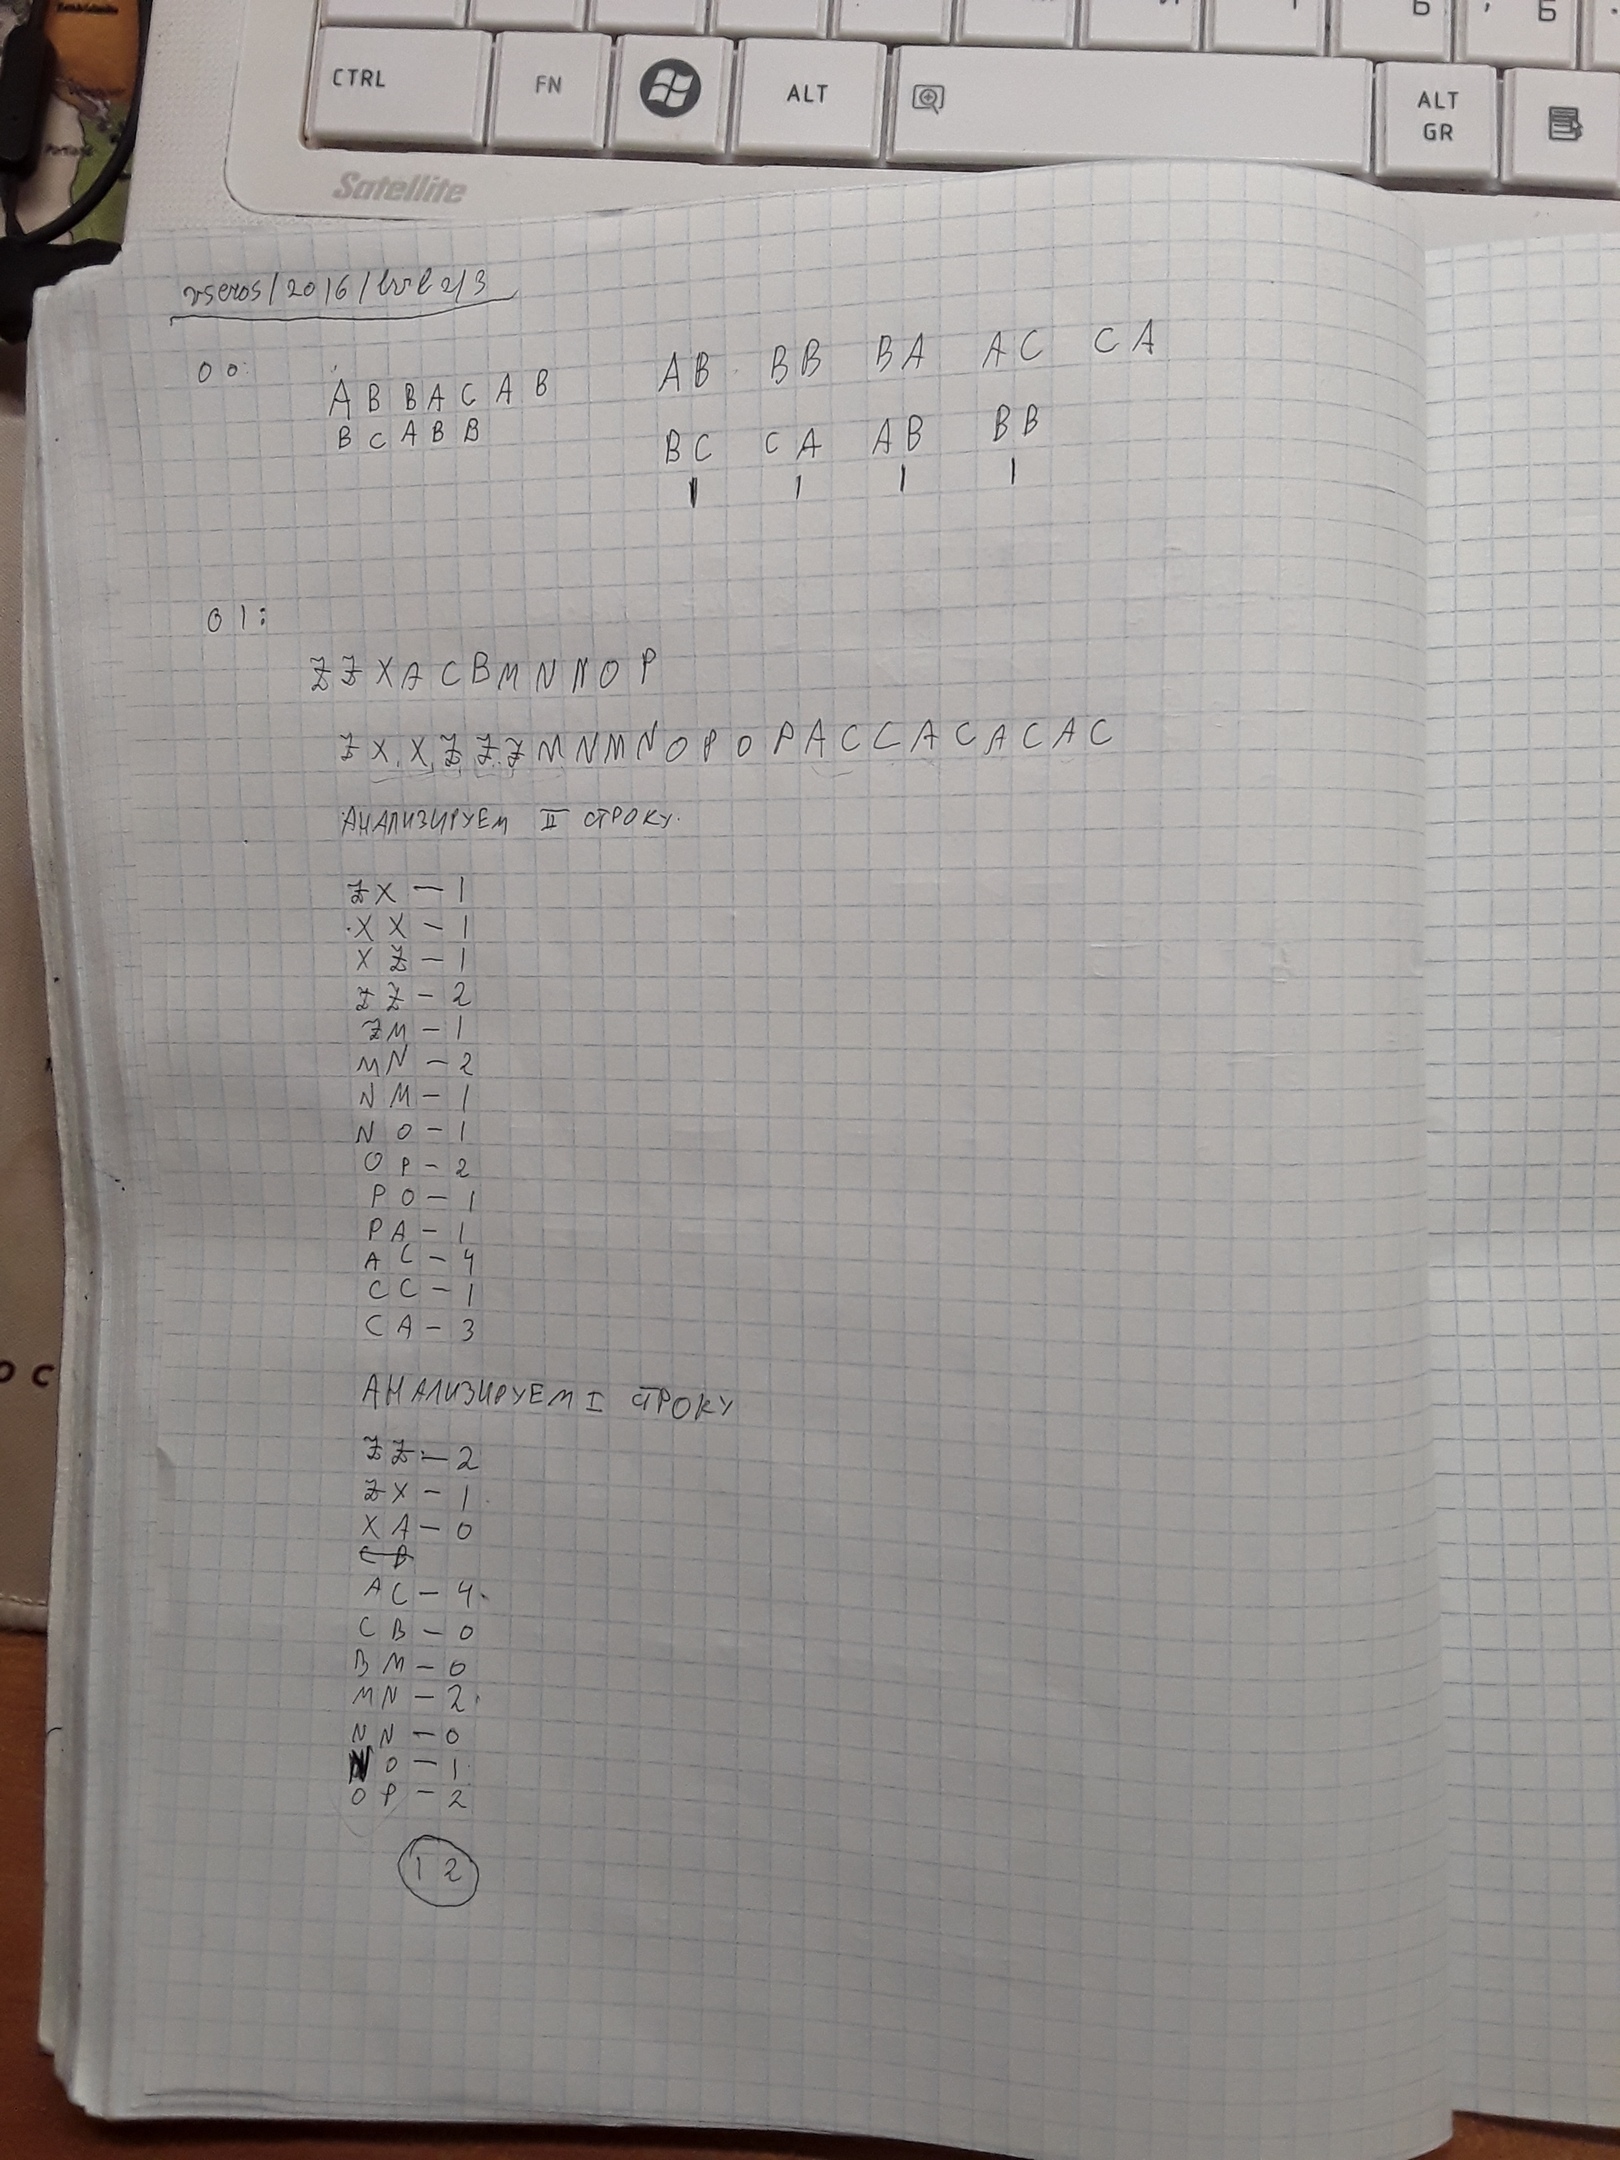 CTRL FN ALT ALT GR
Satellite
vseros/2016/lvl2/3
00:
ABBACAB AB BB BA AC CA
BCABB BC CA AB BB
1 1 1 1
01:
ZZXACBMNNOP
ZXXZZZMNMNOPOPACCACACAC
АНАЛИЗИРУЕМ II СТРОКУ.
ZX - 1
XX - 1
XZ - 1
ZZ - 2
ZM - 1
MN - 2
NM - 1
NO - 1
OP - 2
PO - 1
PA - 1
AC - 4
CC - 1
CA - 3
АНАЛИЗИРУЕМ I СТРОКУ
ZZ - 2
ZX - 1
XA - 0
CB
AC - 4
CB - 0
BM - 0
MN - 2
NN - 0
NO - 1
OP - 2
12